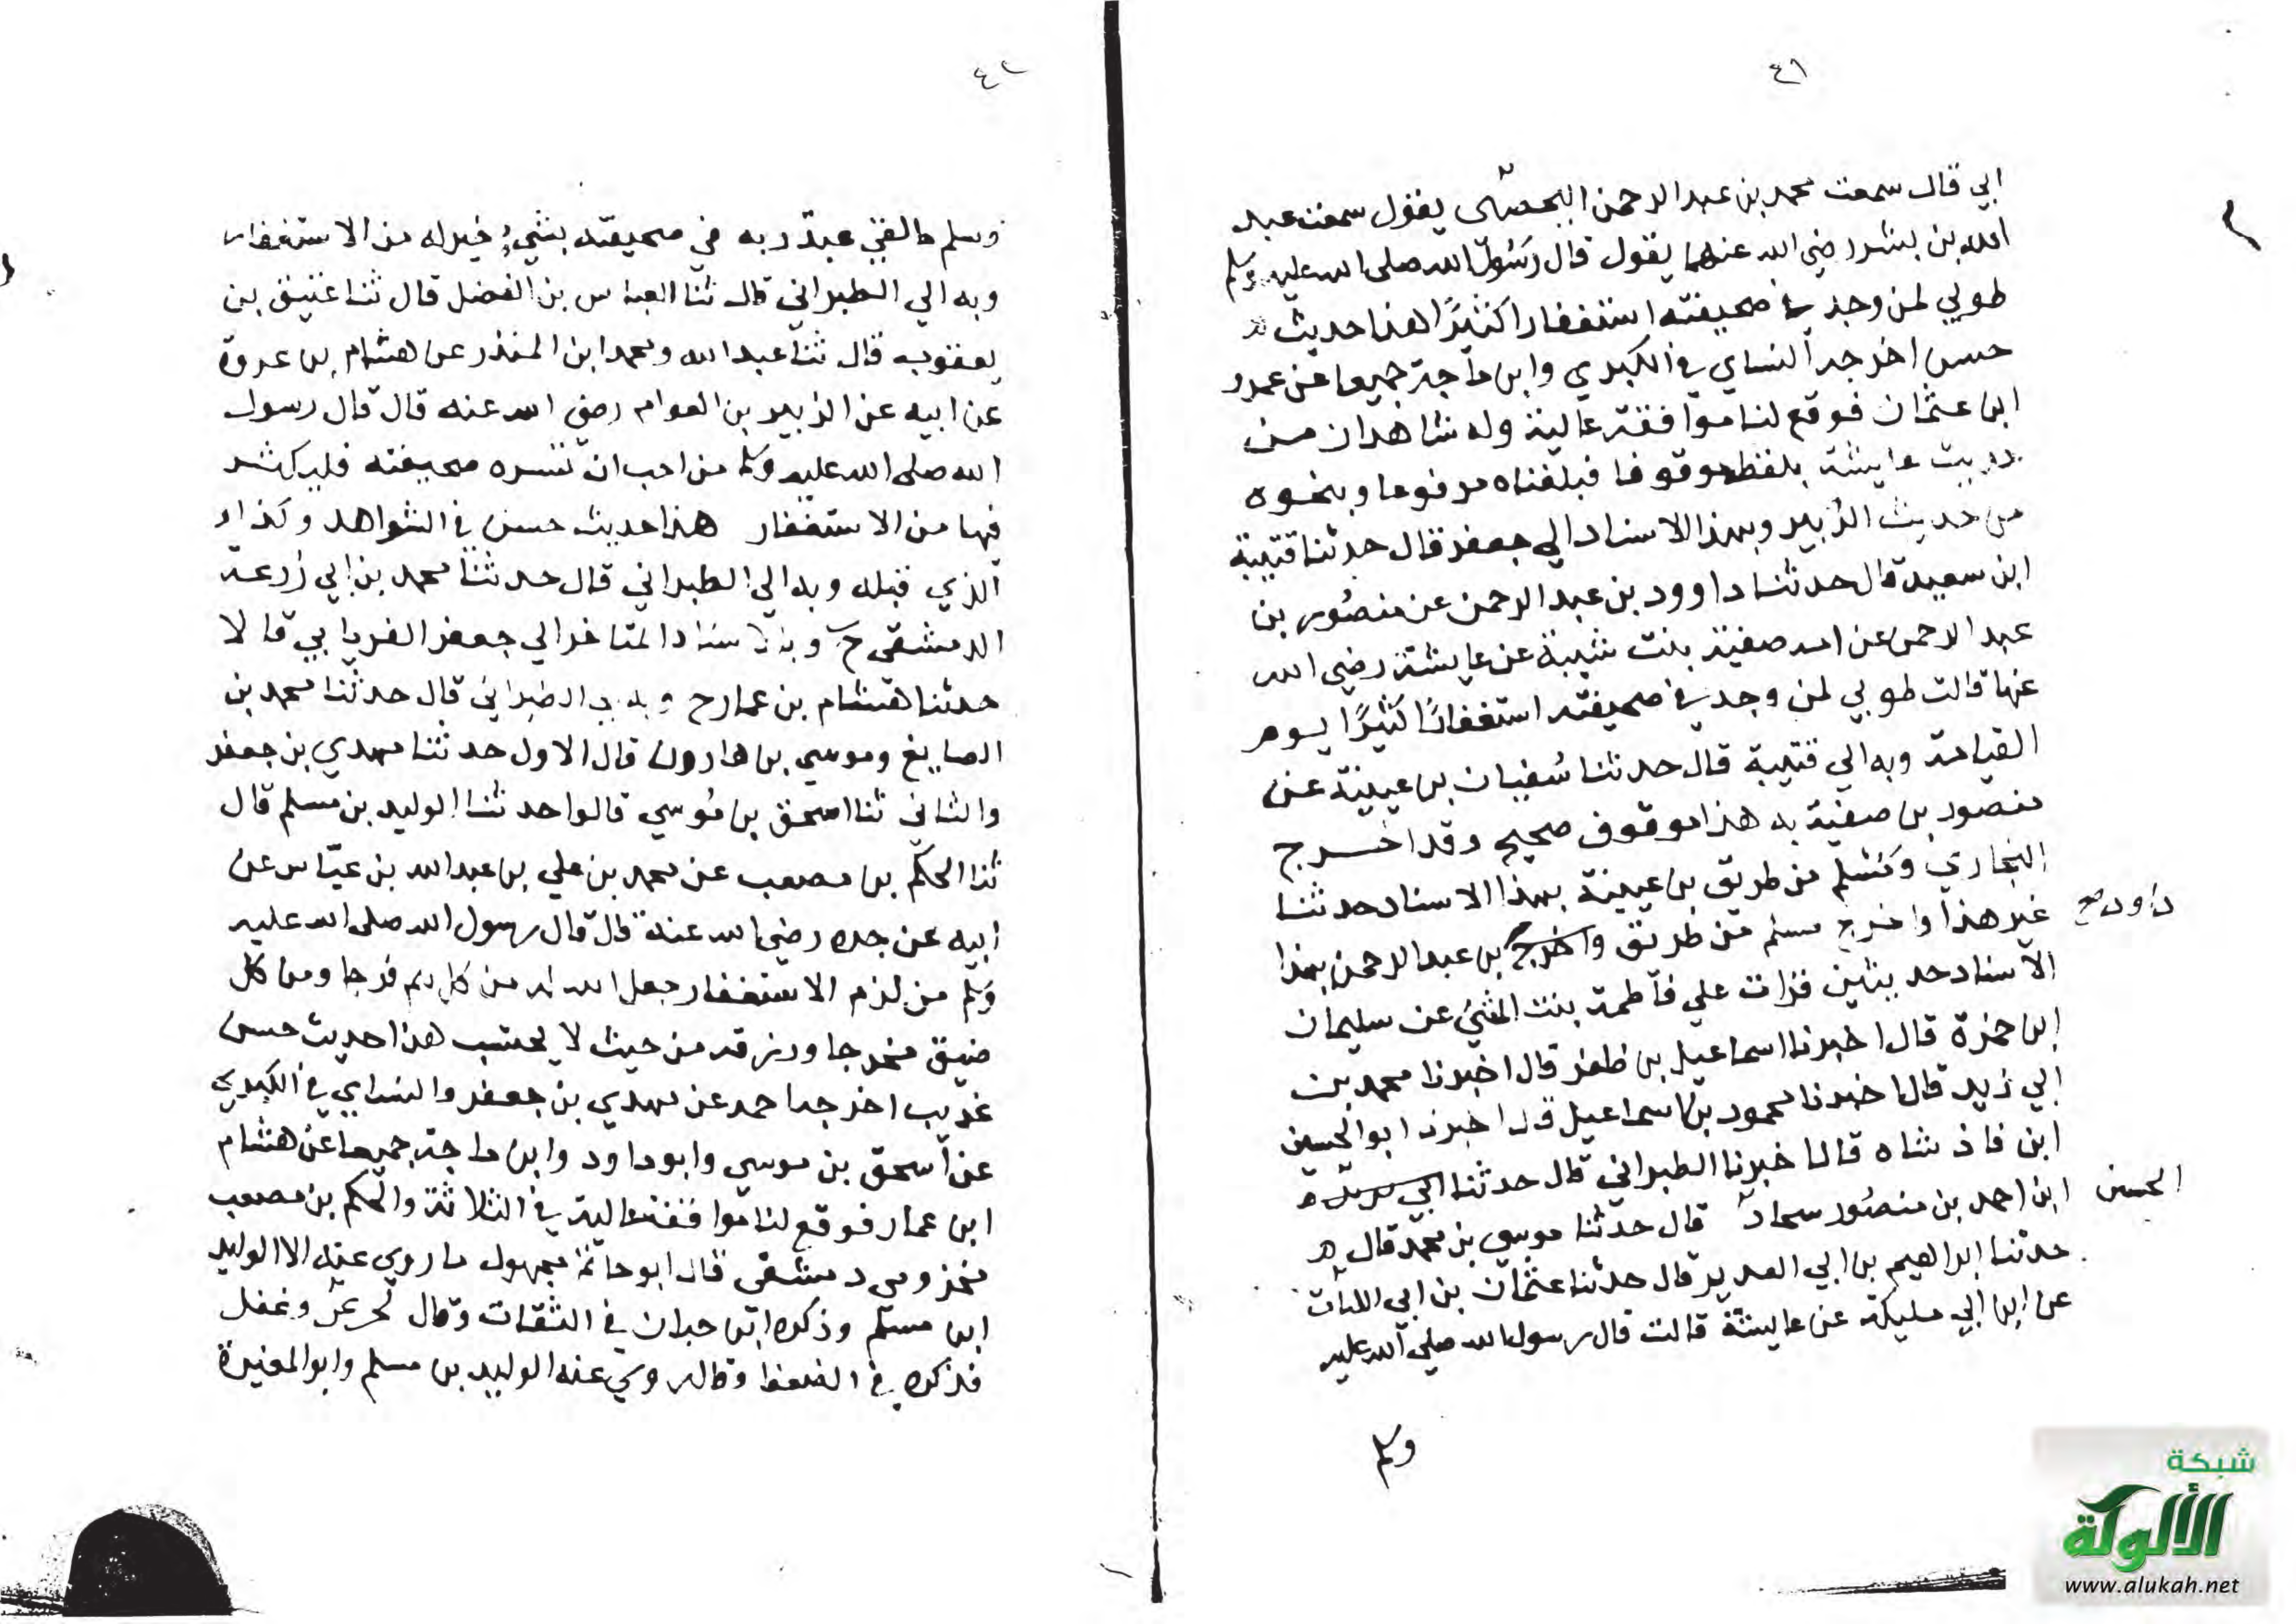 ٤١
ابي قال سمعت محمد بن عبد الرحمن اليحصبي يقول سمعت عبد
الله بن بشر رضي الله عنهما يقول قال رسول الله صلى الله عليه وسلم
طوبي لمن وجد في صحيفته استغفارا كثيرًا هذا حديث
حسن اخرجه النساي في الكبري وابن ماجة جميعا عن عمرو
ابن عثمان فوقع لنا موافقة عالية وله شاهدان من
حديث عايشة بلفظه موقوفا فبلغناه مرفوعا وبنحوه
من حديث الزبير وبهذا الاسناد الي جعفر قال حدثنا قتيبة
ابن سعيد قال حدثنا داوود بن عبد الرحمن عن منصور بن
عبد الرحمن عن امه صفية بنت شيبة عن عايشة رضي الله
عنها قالت طوبي لمن وجد في صحيفته استغفارًا كثيرًا يوم
القيامة وبه الي قتيبة قال حدثنا سفيان بن عيينة عن
منصور بن صفية به هذا موقوف صحيح وقد اخرج
البخاري ومسلم من طريق بن عيينة بهذا الاسناد حدثنا
غير هذا واخرج مسلم من طريق واخرج بن عبد الرحمن بهذا
داود صح
الاسناد حديثين قرات علي فاطمة بنت المثني عن سليمان
ابن حمزة قال اخبرنا اسماعيل بن ظفر قال اخبرنا محمد بن
ابي زيد قال اخبرنا محمود بن اسماعيل قال اخبرنا ابو الحسين
ابن فاذ شاه قال اخبرنا الطبراني قال حدثنا
الحسين
ابن احمد بن منصور سجاد قال حدثنا موسي بن محمد قال
حدثنا ابراهيم بن ابي العدير قال حدثنا عثمان بن ابي
عن ابن ابي مليكة عن عايشة قالت قال رسول الله صلي الله عليه
وسلم
٤٢
وسلم ما لقي عبد ربه في صحيفته بشيءٍ خير له من الاستغفار
وبه الي الطبراني قال ثنا العباس بن الفضل قال ثنا عتيق بن
يعقوب قال ثنا عبد الله ومحمد ابن المنذر عن هشام بن عروة
عن ابيه عن الزبير بن العوام رضي الله عنه قال قال رسول
الله صلى الله عليه وسلم من احب ان تسره صحيفته فليكثر
فيها من الاستغفار هذا حديث حسن في الشواهد وكذا
الذي قبله وبه الي الطبراني قال حدثنا محمد بن ابي زرعة
الدمشقي ح وبالاسناد المتاخر الي جعفر الفريابي قالا
حدثنا هشام بن عمار ح وبه الي الطبراني قال حدثنا محمد بن
الصايغ وموسي بن هارون قال الاول حدثنا مهدي بن جعفر
والثاني ثنا اسحق بن موسي قالوا حدثنا الوليد بن مسلم قال
ثنا الحكم بن مصعب عن محمد بن علي بن عبد الله بن عباس عن
ابيه عن جده رضي الله عنه قال قال رسول الله صلى الله عليه
وسلم من لزم الاستغفار جعل الله له من كل هم فرجا ومن كل
ضيق مخرجا ورزقه من حيث لا يحتسب هذا حديث حسن
غريب اخرجه احمد عن مهدي بن جعفر والنساي في الكبري
عن اسحق بن موسي وابو داود وابن ماجة جميعا عن هشام
ابن عمار فوقع لنا موافقة عالية في الثلاثة والحكم بن مصعب
مخزومي دمشقي قال ابو حاتم مجهول ما روي عنه الا الوليد
ابن مسلم وذكره ابن حبان في الثقات وقال وغفل
فذكره في الضعفا وقال روي عنه الوليد بن مسلم وابو المغيرة
شبكة
الألوكة
www.alukah.net